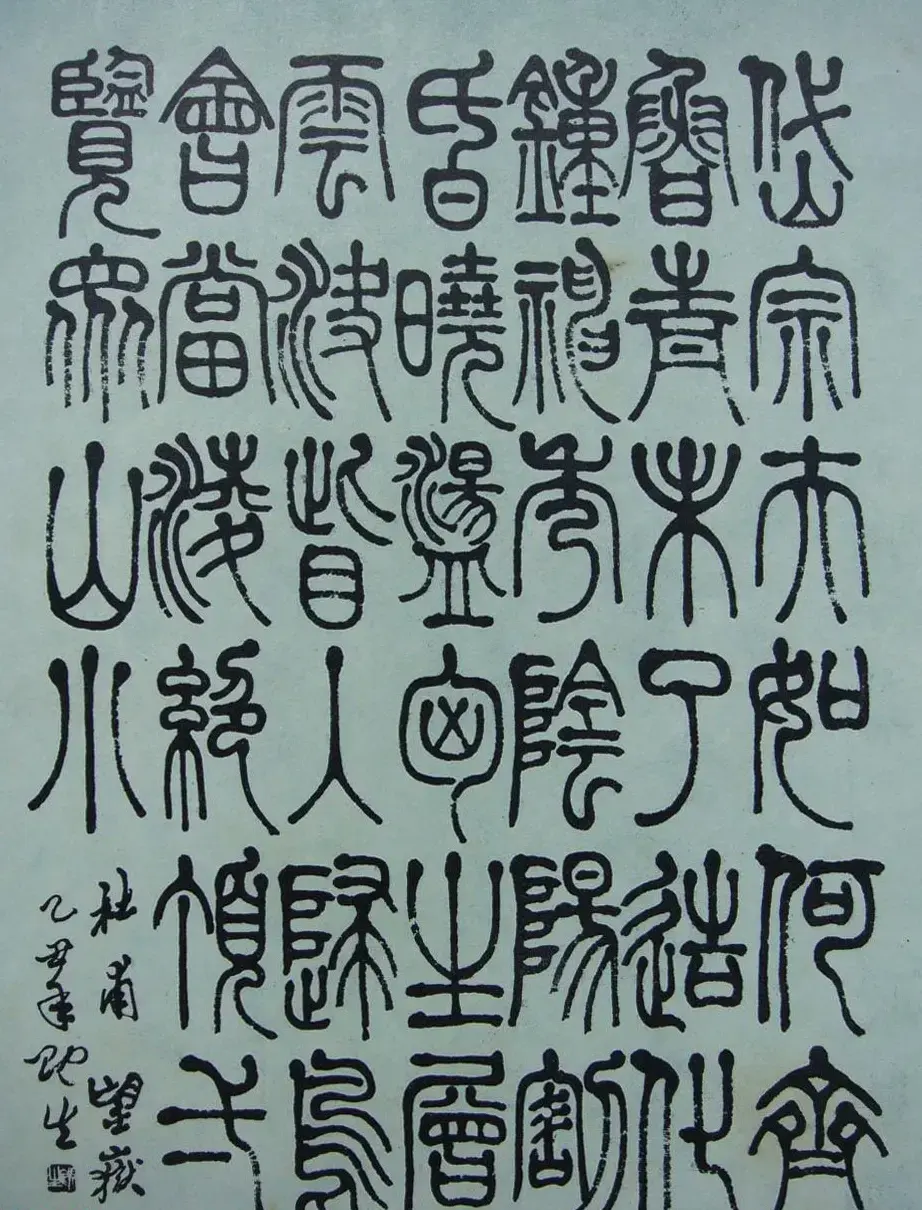 岱宗夫如何齊
魯青未了造化
鍾神秀陰陽割
昏曉盪匈生層
雲決眥入歸鳥
會當淩絕頂弌
覽眾山小
杜甫望嶽
乙丑年